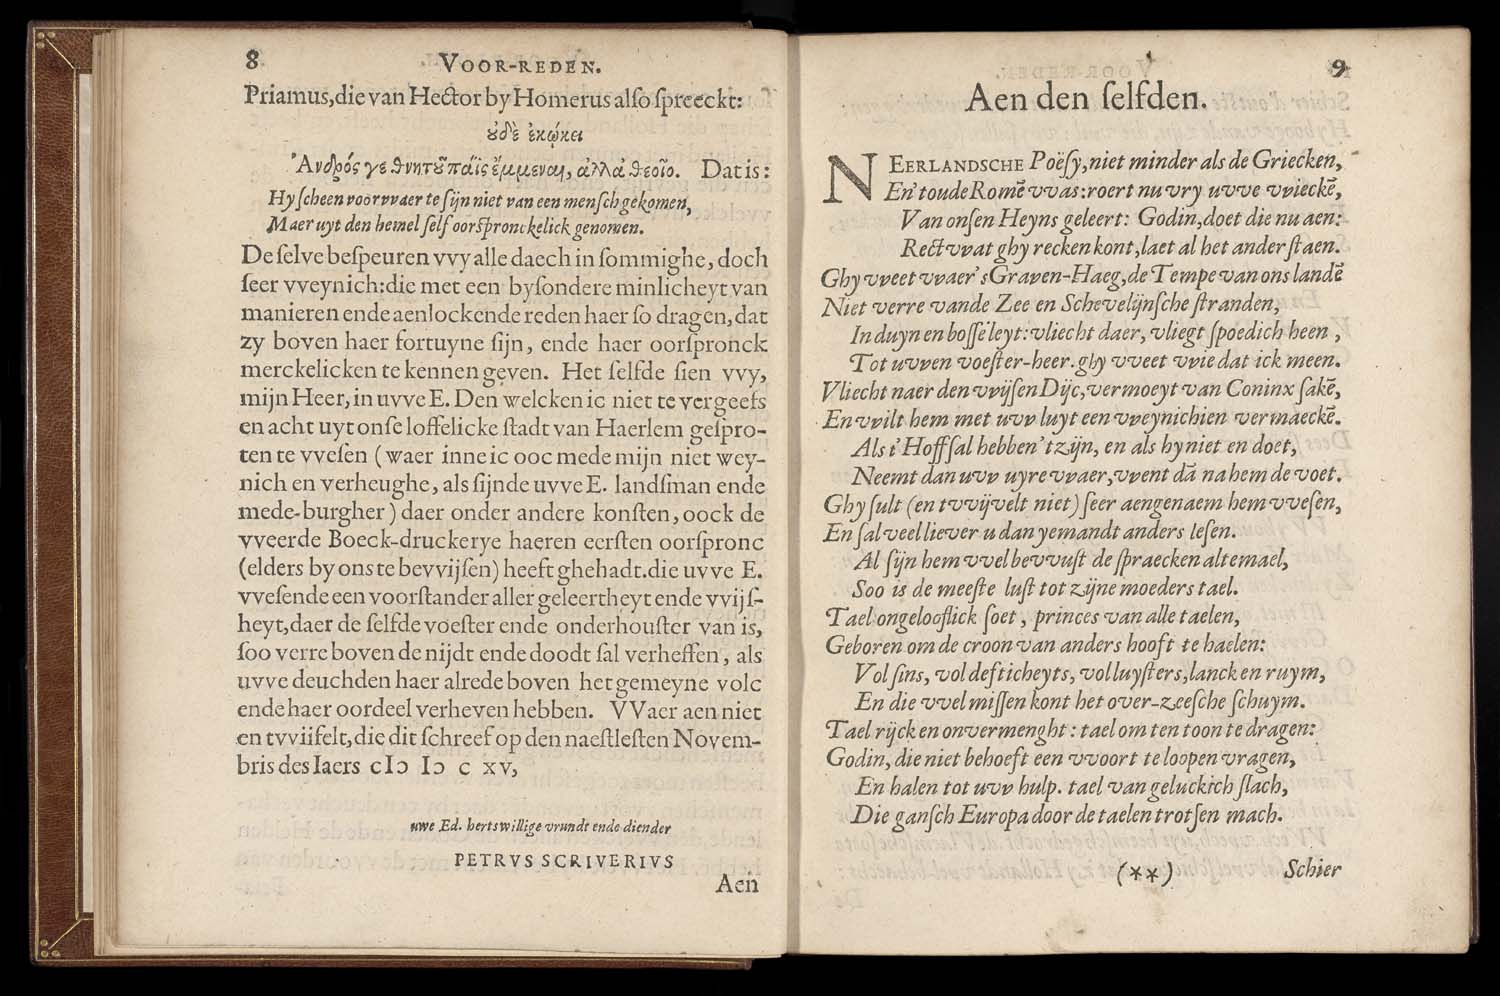 8
VOOR-REDEN.
Priamus,die van Hector by Homerus alſo ſpreeckt:
ȣ̓δὲ ἐῴκει
Ἀνδρός γε θνητȣ͂ πάϊς ἔμμεναι, ἀλλὰ θεοῖο. Dat is:
Hy ſcheen voorvvaer te ſijn niet van een menſch gekomen,
Maer uyt den hemel ſelf oorſpronckelick genomen.
De ſelve beſpeuren vvy alle daech in ſommighe, doch
ſeer vveynich:die met een byſondere minlicheyt van
manieren ende aenlockende reden haer ſo dragen,dat
zy boven haer fortuyne ſijn, ende haer oorſpronck
merckelicken te kennen geven. Het ſelfde ſien vvy,
mijn Heer,in uvve E. Den welcken ic niet te vergeefs
en acht uyt onſe loffelicke ſtadt van Haerlem geſpro-
ten te vveſen (waer inne ic ooc mede mijn niet wey-
nich en verheughe, als ſijnde uvve E. landſman ende
mede-burgher) daer onder andere konſten, oock de
vveerde Boeck-druckerye haeren eerſten oorſpronc
(elders by ons te bevvijſen) heeft ghehadt.die uvve E.
vveſende een voorſtander aller geleertheyt ende vvijſ-
heyt,daer de ſelfde voeſter ende onderhouſter van is,
ſoo verre boven de nijdt ende doodt ſal verheffen, als
uvve deuchden haer alrede boven het gemeyne volc
ende haer oordeel verheven hebben. VVaer aen niet
en tvviifelt,die dit ſchreef op den naeſtleſten Novem-
bris des Iaers cIↄ Iↄ c xv,
uwe Ed. hertswillige vrundt ende diender
PETRVS SCRIVERIVS
Aen
9
Aen den ſelfden.
NEERLANDSCHE Poëſy,niet minder als de Griecken,
En't oude Romē vvas:roert nu vry uvve vvieckē,
Van onſen Heyns geleert: Godin,doet die nu aen:
Rect vvat ghy recken kont,laet al het ander ſtaen.
Ghy vveet vvaer's Graven-Haeg,de Tempe van ons landē
Niet verre vande Zee en Schevelijnſche ſtranden,
In duyn en boſſē leyt:vliecht daer, vliegt ſpoedich heen,
Tot uvven voeſter-heer.ghy vveet vvie dat ick meen.
Vliecht naer den vvijſen Dijc,vermoeyt van Coninx ſakē,
En vvilt hem met uvv luyt een vveynichien vermaeckē.
Als t'Hoff ſal hebben't zijn, en als hy niet en doet,
Neemt dan uvv uyre vvaer,vvent dā na hem de voet.
Ghy ſult (en tvvijvelt niet) ſeer aengenaem hem vveſen,
En ſal veel liever u dan yemandt anders leſen.
Al ſijn hem vvel bevvuſt de ſpraecken altemael,
Soo is de meeſte luſt tot zijne moeders tael.
Tael ongelooflick ſoet, princes van alle taelen,
Geboren om de croon van anders hooft te haelen:
Vol ſins, vol defticheyts, vol luyſters,lanck en ruym,
En die vvel miſſen kont het over-zeeſche ſchuym.
Tael rijck en onvermenght: tael om ten toon te dragen:
Godin, die niet behoeft een vvoort te loopen vragen,
En halen tot uvv hulp. tael van geluckich ſlach,
Die ganſch Europa door de taelen trotſen mach.
(**)
Schier